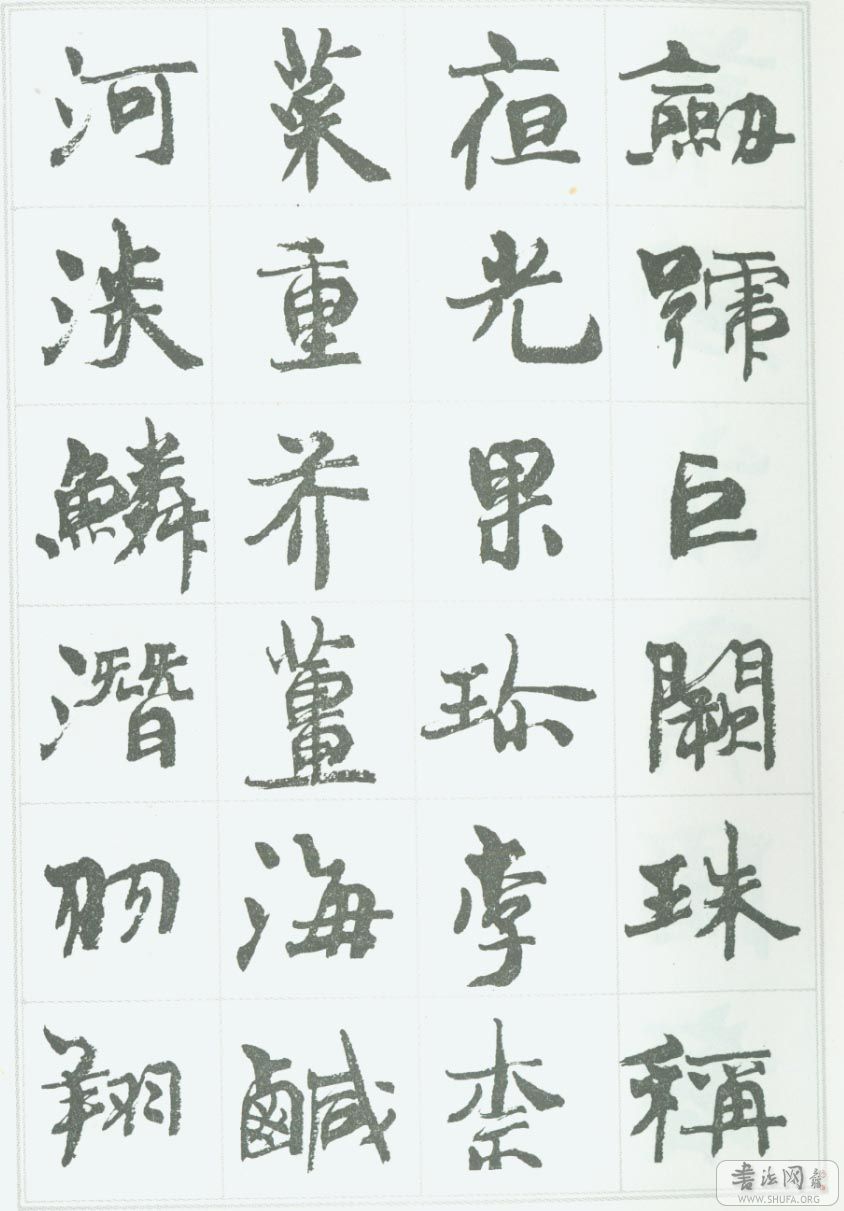 劒號巨闕珠稱
夜光果珎李柰
菜重芥薑海鹹
河淡鱗潛羽翔
書法网
WWW.SHUFA.ORG